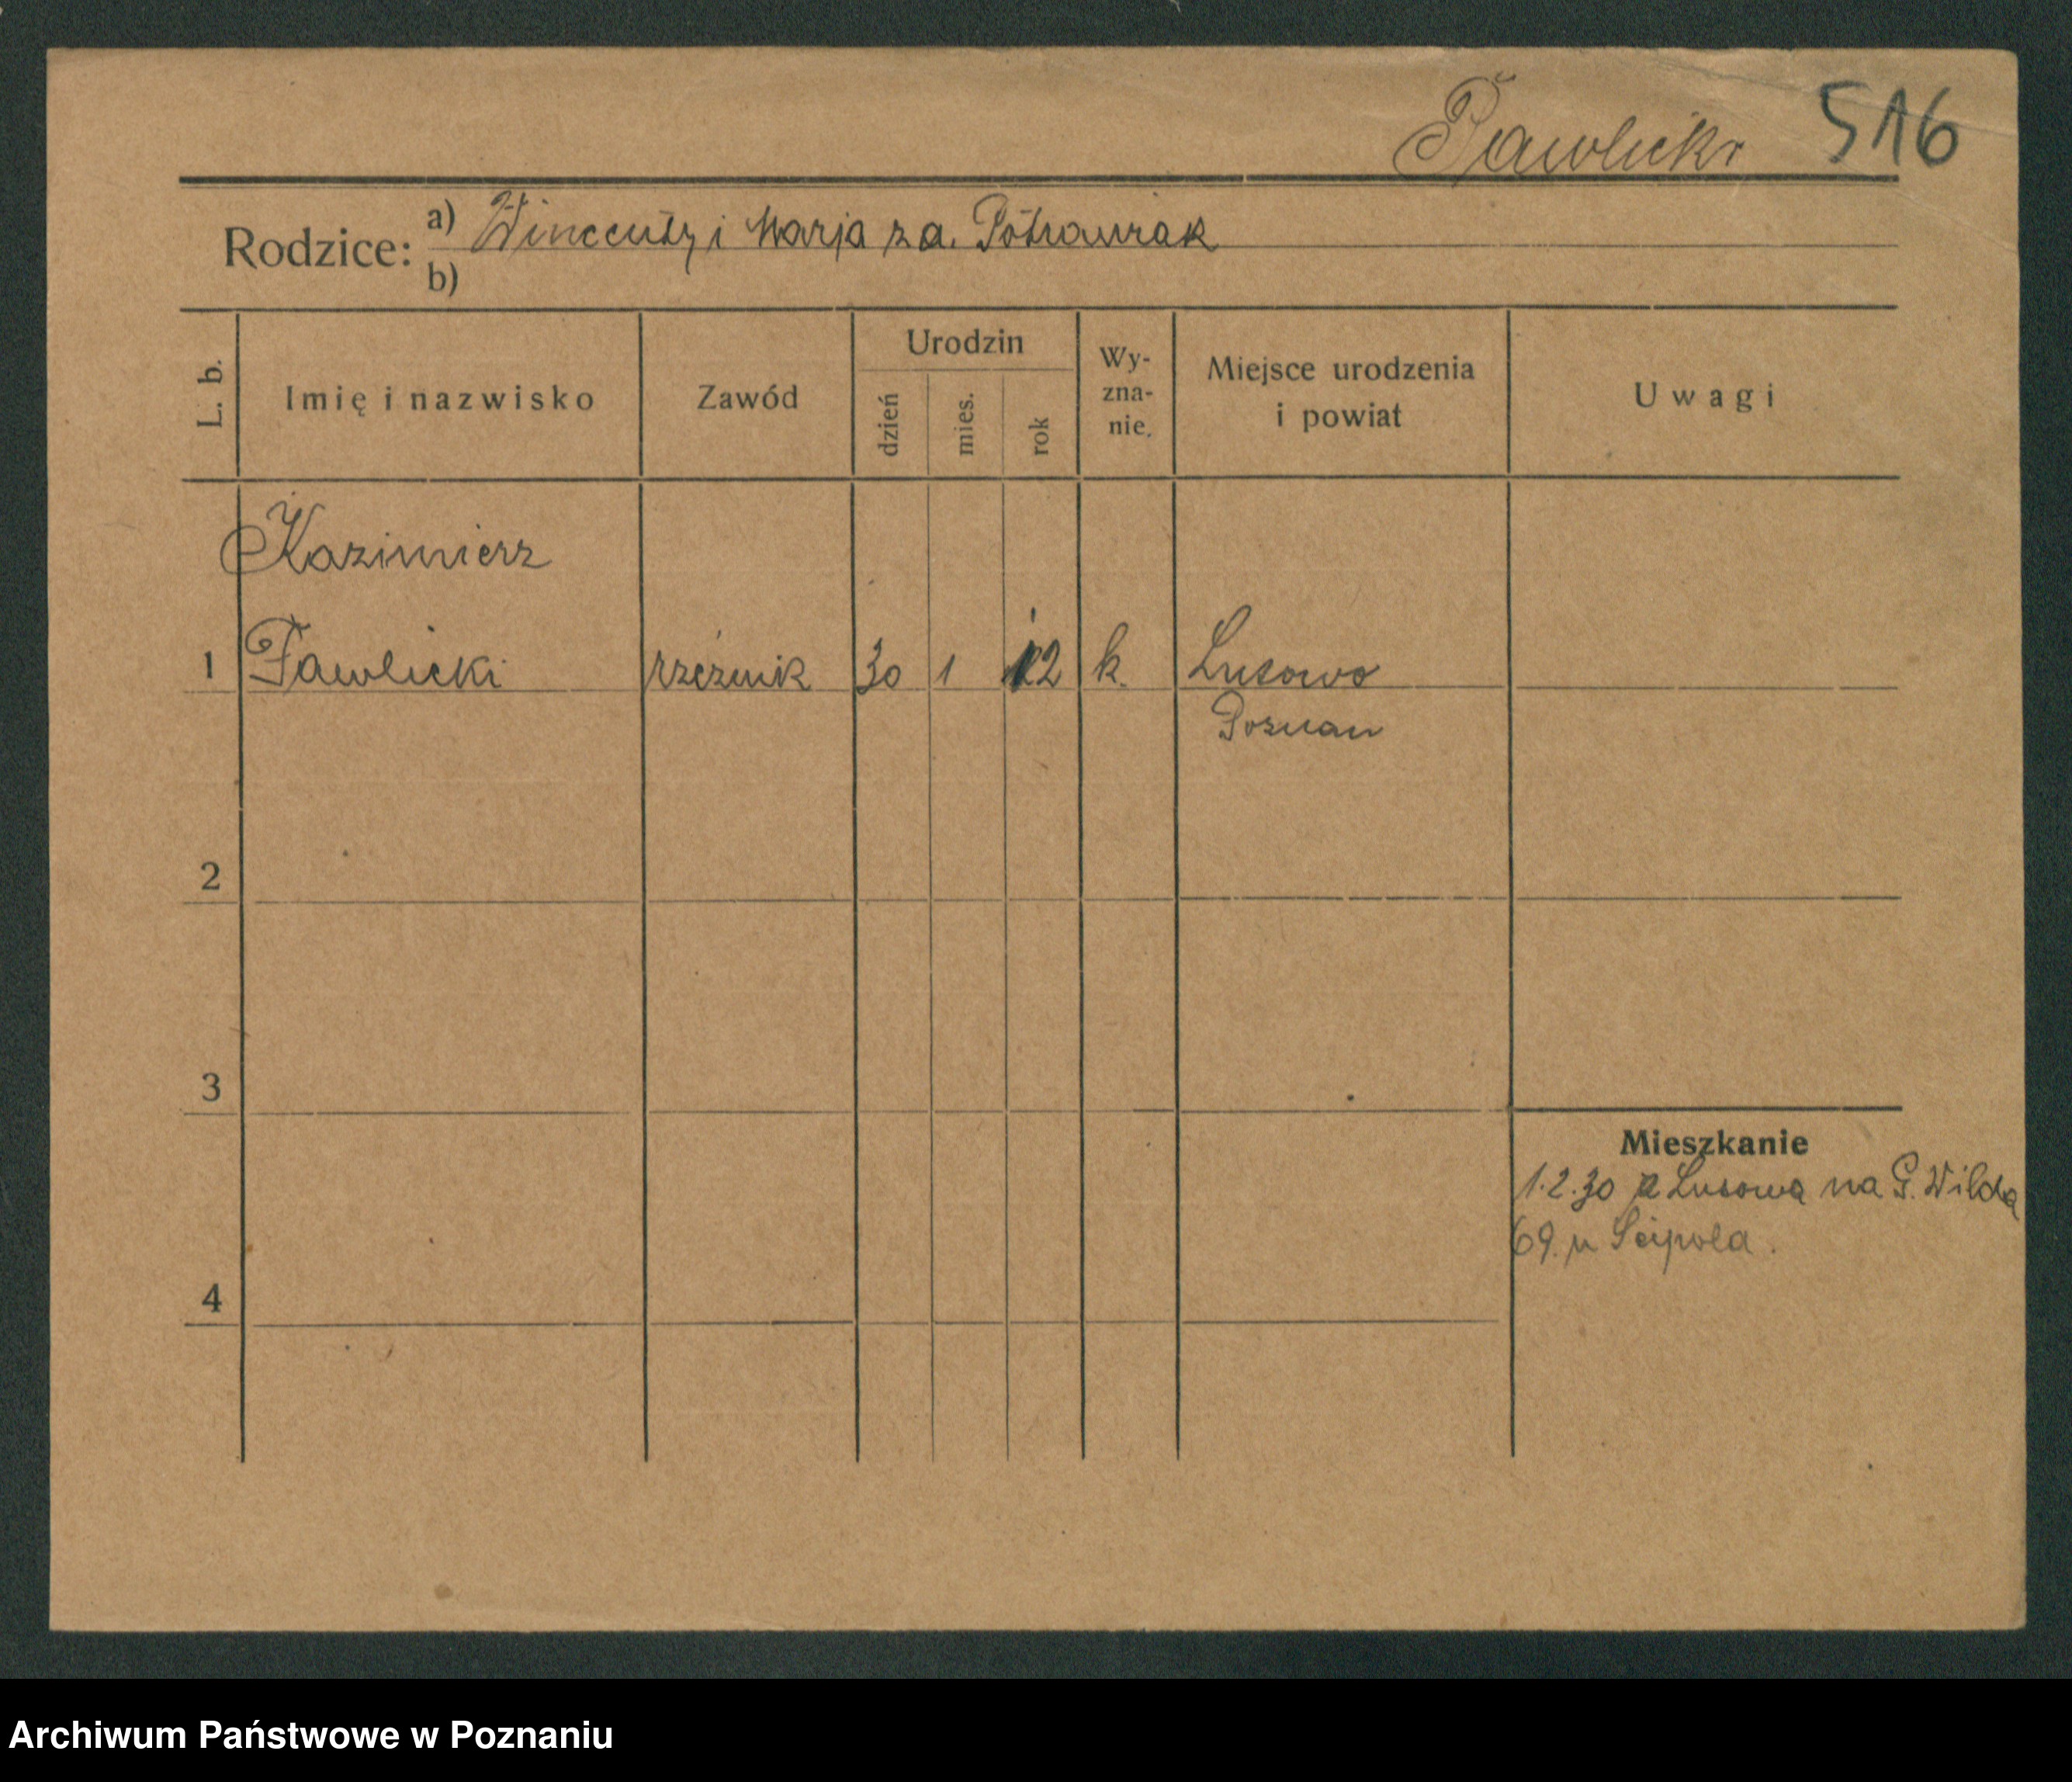 Pawlicki 516
Rodzice: a) Wincenty i Marja z d. Piotrowiak
b)
L. b. Imię i nazwisko Zawód Urodzin dzień mies. rok Wy-zna-nie. Miejsce urodzenia i powiat Uwagi
Kazimierz
1 Pawlicki rzeźnik 30 1 12 k. Lusowo
Poznan
2
3
Mieszkanie
1.2.30 z Lusowa na G. Wildą
69. u Scipola.
4
Archiwum Państwowe w Poznaniu